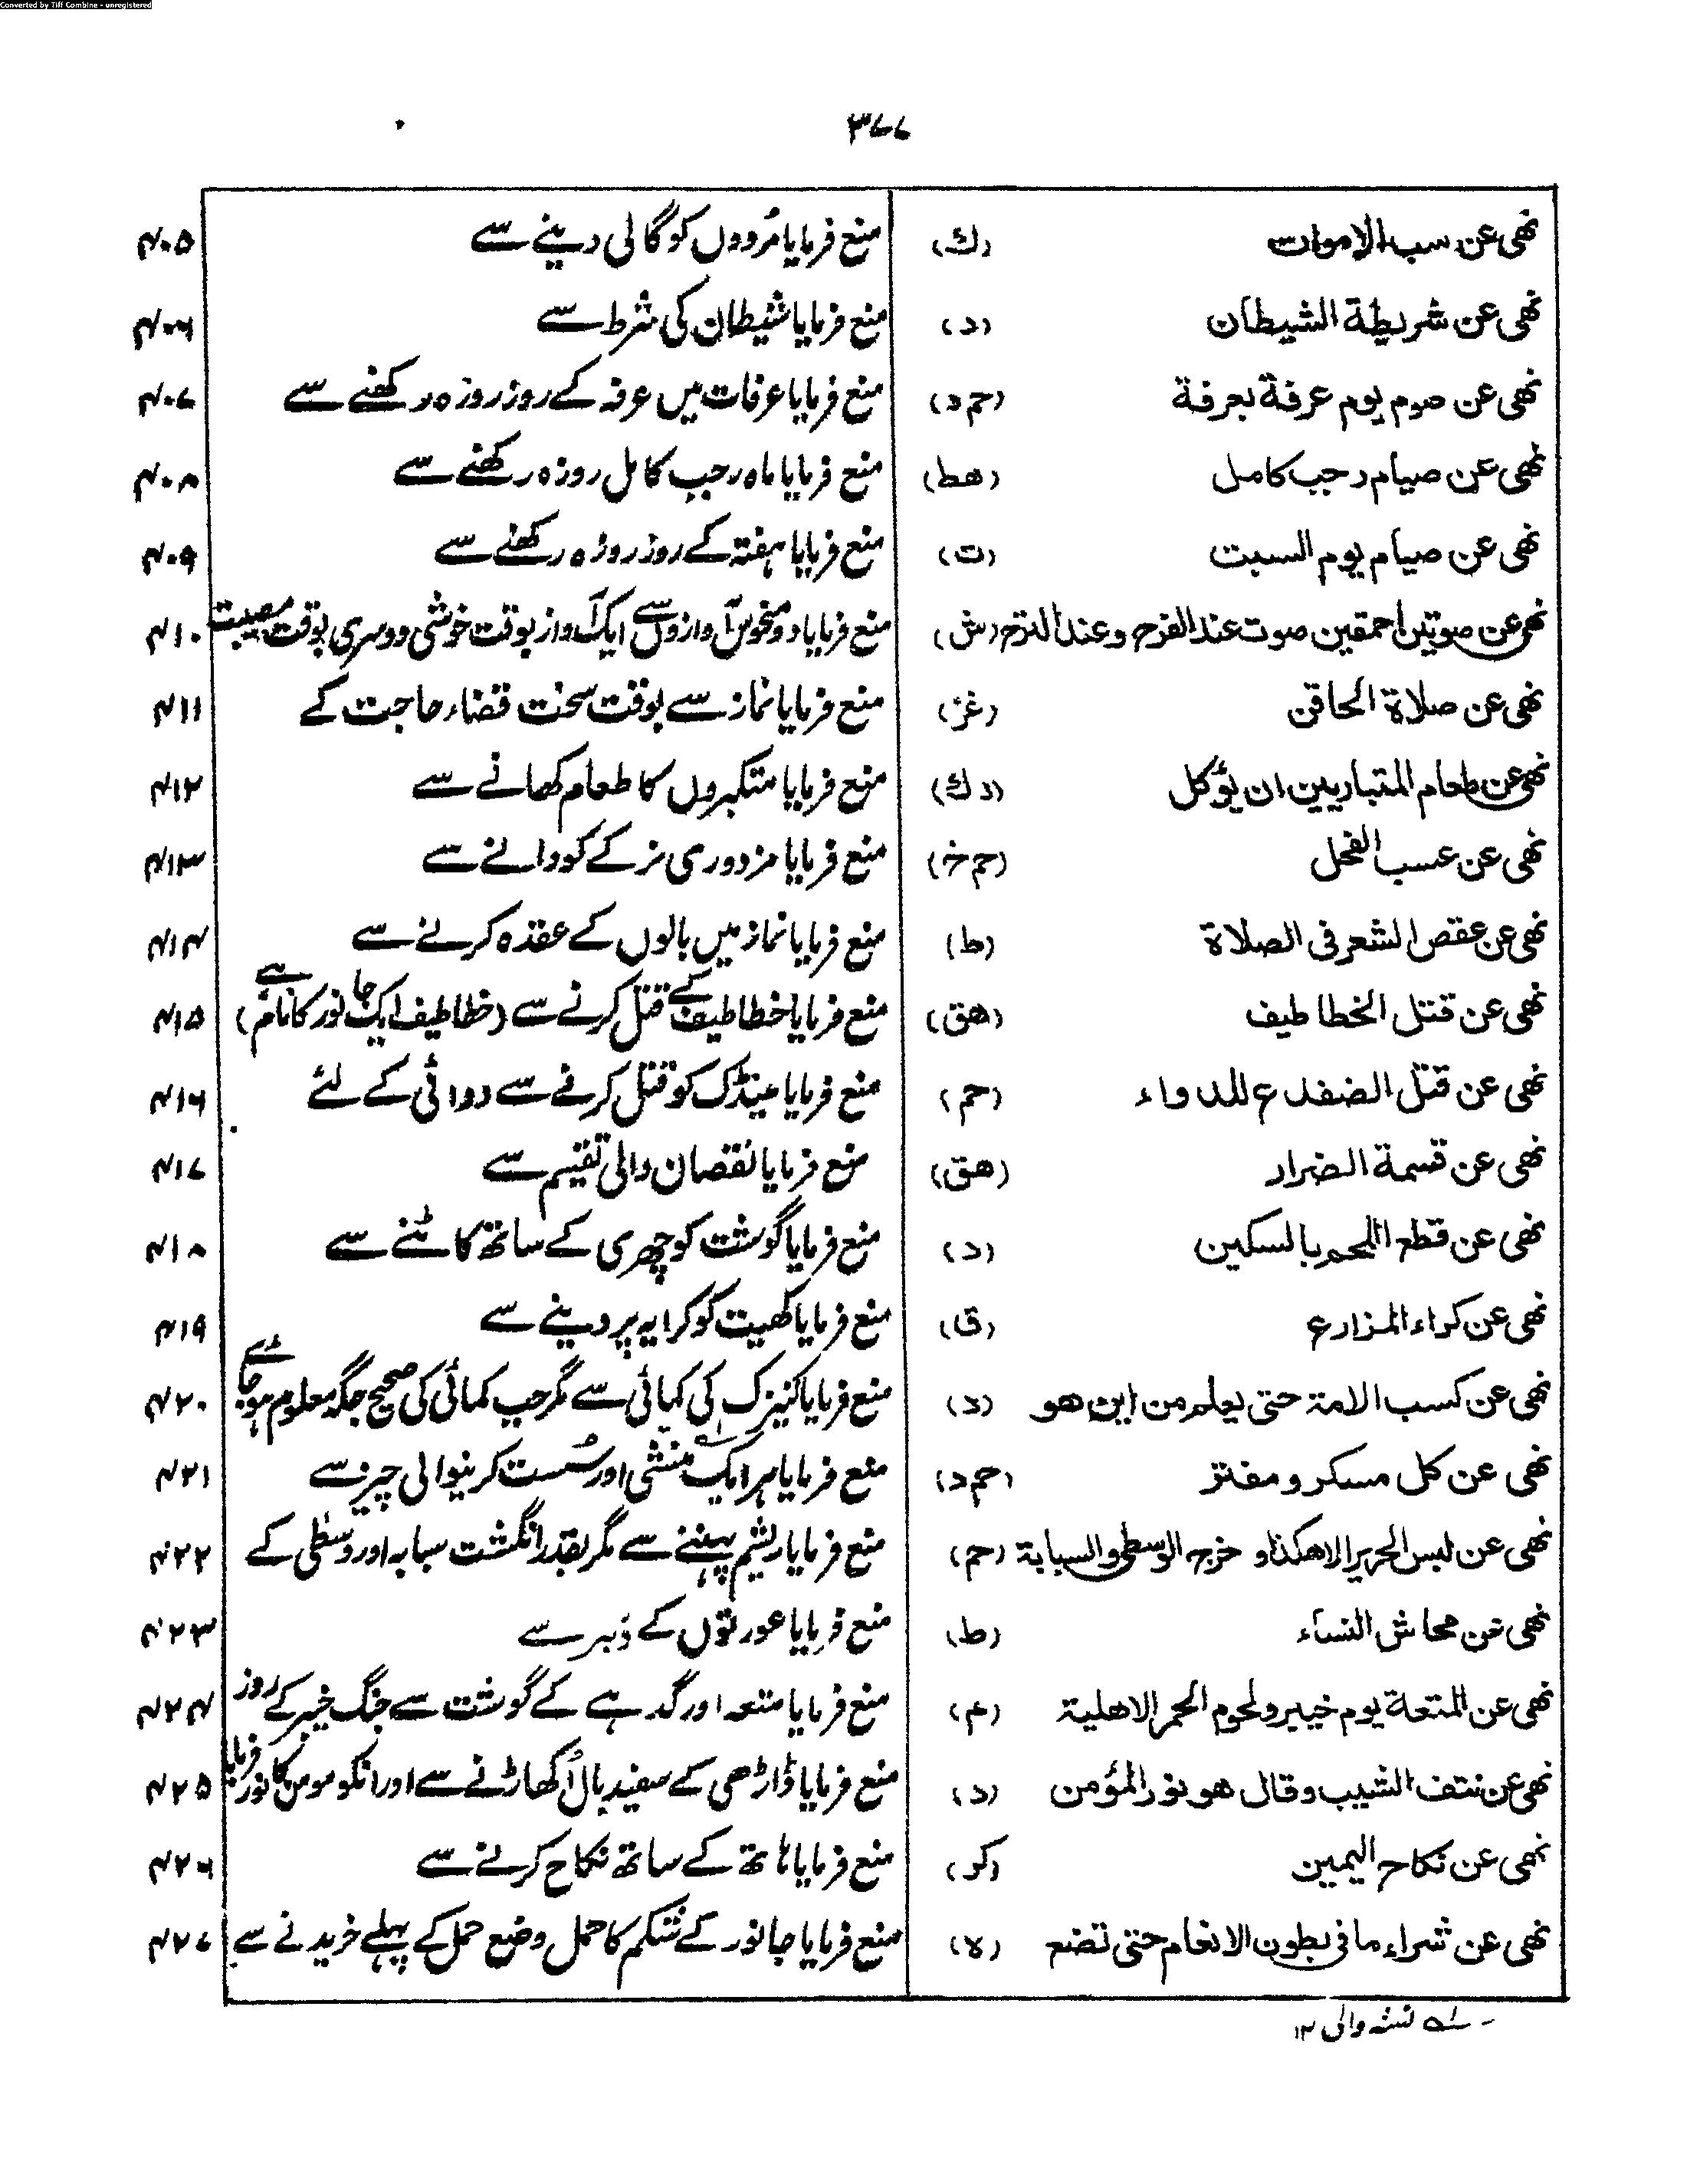 Converted by Tiff Combine - unregistered
۳۷۷
نهى عن سب الاموات (ك) منع فرمایا مُردوں کو گالی دینے سے ۴۰۵
نهى عن شريطة الشيطان (د) منع فرمایا شیطان کی شرط سے ۴۰۶
نهى عن صوم يوم عرفة بعرفة (حم د) منع فرمایا عرفات میں عرفہ کے روز روزہ رکھنے سے ۴۰۷
نهى عن صيام رجب كامل (هط) منع فرمایا ماہ رجب کامل روزہ رکھنے سے ۴۰۸
نهى عن صيام يوم السبت (ت) منع فرمایا ہفتہ کے روز روزہ رکھنے سے ۴۰۹
نهى عن صوتين احمقين صوت عند الفرح وعند الترح (ش) منع فرمایا دو منحوس آوازوں سے ایک آواز بوقت خوشی دوسری بوقت مصیبت ۴۱۰
نهى عن صلاة الحاقن (غز) منع فرمایا نماز سے بوقت سخت قضاء حاجت کے ۴۱۱
نهى عن طعام المتباريين ان يؤكل (دك) منع فرمایا متکبروں کا طعام کھانے سے ۴۱۲
نهى عن عسب الفحل (حم خ) منع فرمایا مزدوری نر کے کودانے سے ۴۱۳
نهى عن عقص الشعر فى الصلاة (ط) منع فرمایا نماز میں بالوں کے عقدہ کرنے سے ۴۱۴
نهى عن قتل الخطاطيف (هق) منع فرمایا خطاطیف کے قتل کرنے سے (خطاطیف ایک جانور کا نام ہے) ۴۱۵
نهى عن قتل الضفدع للدواء (حم) منع فرمایا مینڈک کو قتل کرنے سے دوائی کے لئے ۴۱۶
نهى عن قسمة الضرار (هق) منع فرمایا نقصان والی تقسیم سے ۴۱۷
نهى عن قطع اللحم بالسكين (د) منع فرمایا گوشت کو چھری کے ساتھ کاٹنے سے ۴۱۸
نهى عن كراء المزارع (ق) منع فرمایا کھیت کو کرایہ پر دینے سے ۴۱۹
نهى عن كسب الامة حتى يعلم من اين هو (د) منع فرمایا کنیزک کی کمائی سے مگر جب کمائی کی صحیح جگہ معلوم ہو جائے ۴۲۰
نهى عن كل مسكر و مفتر (حم د) منع فرمایا ہر ایک منشی اور سُست کرنیوالی چیز سے ۴۲۱
نهى عن لبس الحرير الا هكذا و خرج الوسطى والسبابة (حم) منع فرمایا ریشم پہننے سے مگر بقدر انگشت سبابہ اور وسطٰی کے ۴۲۲
نهى عن محاش النساء (ط) منع فرمایا عورتوں کے دُبر سے ۴۲۳
نهى عن المتعة يوم خيبر ولحوم الحمر الاهلية (م) منع فرمایا متعہ اور گدہے کے گوشت سے جنگ خیبر کے روز ۴۲۴
نهى عن نتف الشيب وقال هو نور المؤمن (د) منع فرمایا ڈاڑھی کے سفید بال اُکھاڑنے سے اور انکو مومن کا نور فرمایا ۴۲۵
نهى عن نكاح اليمين (كر) منع فرمایا ہاتھ کے ساتھ نکاح کرنے سے ۴۲۶
نهى عن شراء ما فى بطون الانعام حتى تضع (ه) منع فرمایا جانور کے شکم کا حمل وضع حمل کے پہلے خریدنے سے ۴۲۷